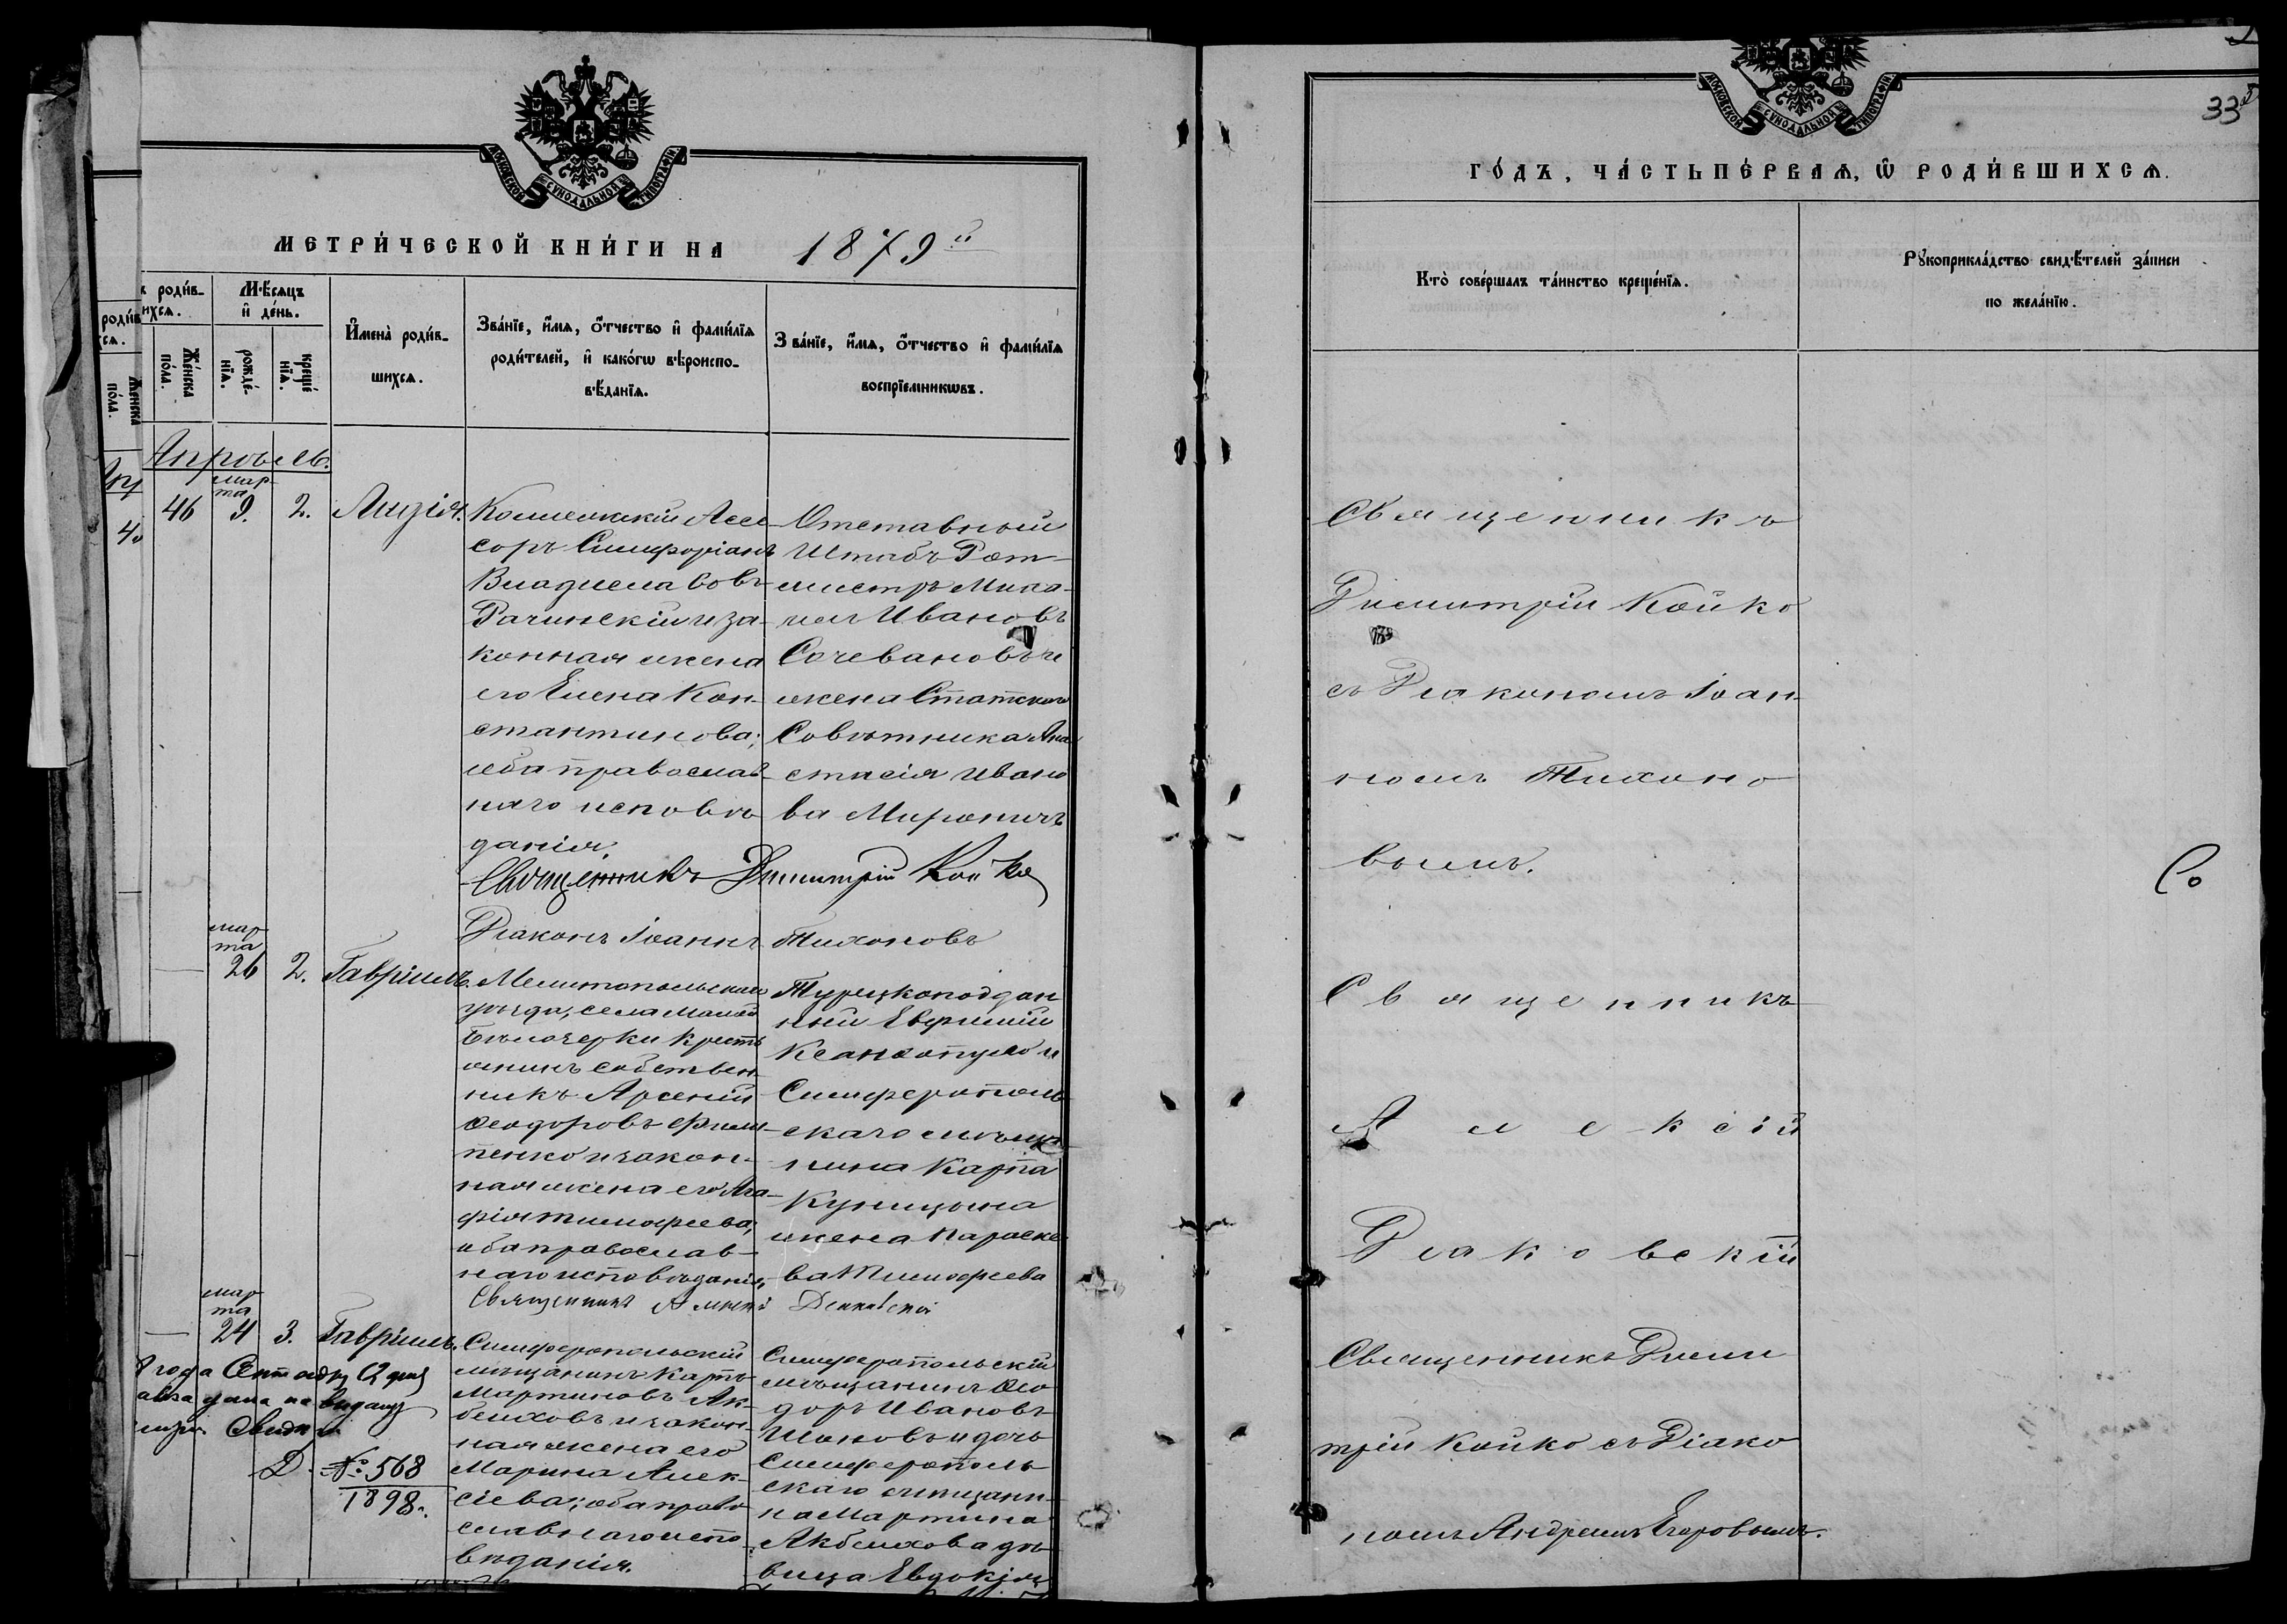 МОСКОВСКОЙ СѴНОДАЛЬНОЙ ТИПОГРАФІИ
МЕТРИ́ЧЕСКОЙ КНИ́ГИ НА 1879й
роди́вшихся.
Же́нска по́ла.
Мѣ́сяцъ и҆ де́нь.
рожде́нїя.
креще́нїя.
И҆мена̀ роди́в-
шихся.
Зва́нїе, и҆́мя, ѻ҆́тчество и҆ фами́лїя
роди́телей, и҆ како́гѡ вѣ́роиспо-
вѣ́данїя.
Зва́нїе, и҆́мя, ѻ҆́тчество и҆ фами́лїя
воспрїе́мникѡвъ.
Апрѣль.
мар-
та
46 9. 2. Лидія.
Коллежскій Ассе-
соръ Симфоріанъ
Владиславовъ
Рачинскій и за-
конная жена
его Елена Кон-
стантинова;
оба православ-
наго исповѣ-
данія.
Отставный
Штабъ Рот-
мистръ Миха-
илъ Ивановъ
Сочевановъ и
жена Статскаго
Совѣтника Ана-
стасія Ивано-
ва Мироничъ
Священникъ Димитрій Койко
Діаконъ Іоаннъ Тихоновъ
мар
та
26 2. Гавріилъ.
Мелитопольскаго
уѣзда, села Малой
Бѣлозерки кресть-
янинъ собствен-
никъ Арсеній
Ѳеодоровъ Фили-
пенко и закон-
ная жена его Ага-
фія Тимофеева;
оба православ-
наго исповѣданія.
Турецкоподдан
ный Евфимій
Ксанхопуло и
Симферополь-
скаго мѣща-
нина Карпа
Куницына
жена Параске-
ва Тимофеева
Священникъ Алексій
мар
та
24 3. Гавріилъ.
Симферопольскій
мѣщанинъ Карпъ
Мартиновъ Ак-
блиховъ и закон-
ная жена его
Марина Алек-
сіева; оба право-
славнаго испо-
вѣданія.
Симферопольскій
мѣщанинъ Ѳео-
доръ Ивановъ
и дочь
Симферополь-
скаго мѣщани-
на Мартина
Акблихова дѣ-
вица Евдокія
года
дана на выдачу
№ 568
1898.
33
МОСКОВСКОЙ СѴНОДАЛЬНОЙ ТИПОГРАФІИ
ГО́ДЪ, ЧА́СТЬ ПЕ́РВАЯ, Ѡ҆ РОДИ́ВШИХСЯ.
Кто̀ соверша́лъ та́инство креще́нїя.
Рꙋкоприкла́дство свидѣ́телей за́писи
по жела́нїю.
Священникъ
Димитрій Койко
съ Діакономъ Іоан-
номъ Тихоно-
вымъ.
Со
Священникъ
Алексій
Діаковскій
Священникъ Дими
трій Койко съ Діако
номъ Андреемъ Егоровымъ.